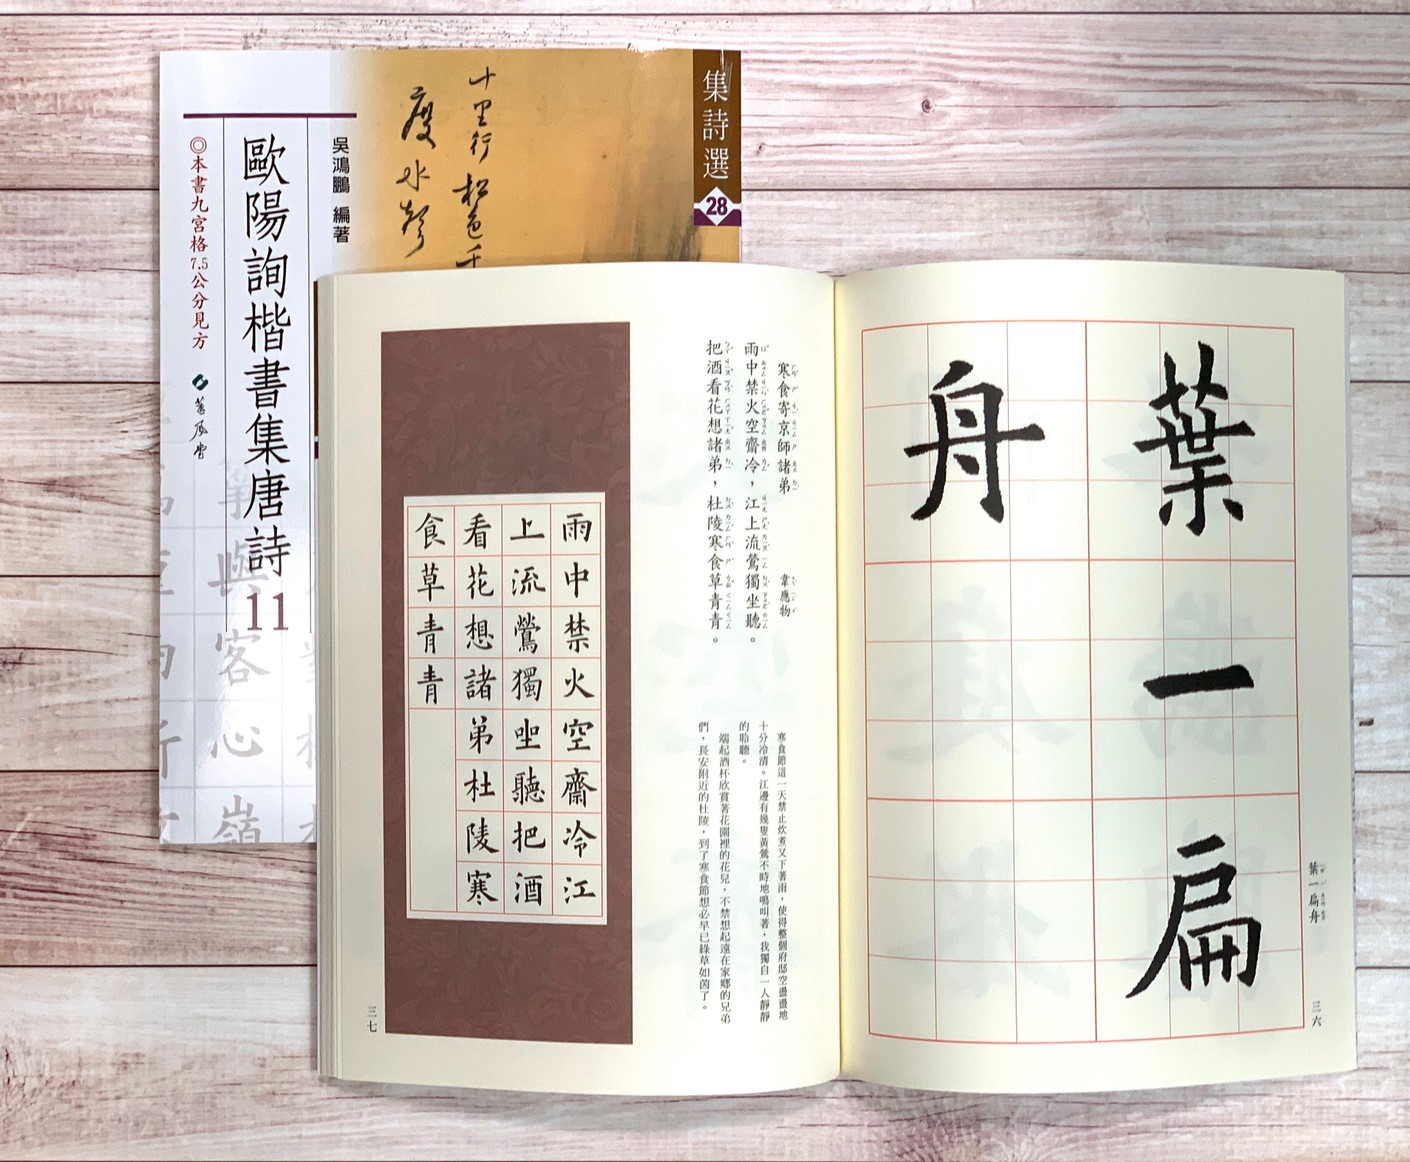 集詩選
28
十里行松色千
度水聲
吳鴻鵬 編著
歐陽詢楷書集唐詩 11
◎本書九宮格7.5公分見方
葉一扁
舟
葉一扁舟
三六
寒食寄京師諸弟 韋應物
雨中禁火空齋冷，江上流鶯獨坐聽。
把酒看花想諸弟，杜陵寒食草青青。
寒食節這一天禁止炊煮又下著雨，使得整個府邸空盪盪地
十分冷清。江邊有幾隻黃鶯不時地鳴叫著，我獨自一人靜靜
的聆聽。
端起酒杯欣賞著花園裡的花兒，不禁想起遠在家鄉的兄弟
們，長安附近的杜陵，到了寒食節想必早已綠草如茵了。
雨中禁火空齋冷江
上流鶯獨坐聽把酒
看花想諸弟杜陵寒
食草青青
三七